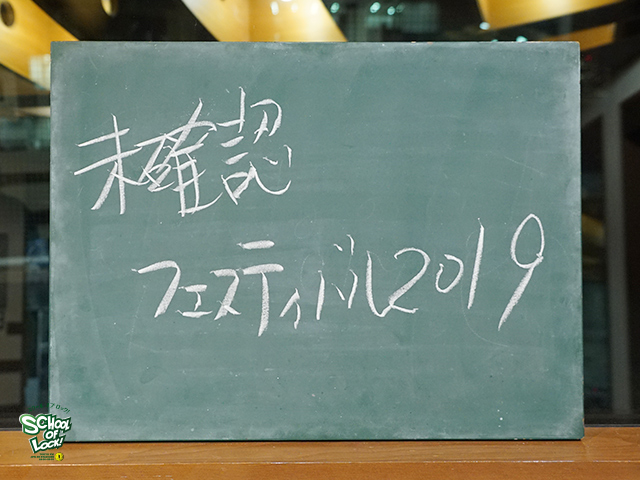 未確認
フェスティバル2019
SCHOOL
OF
LOCK!